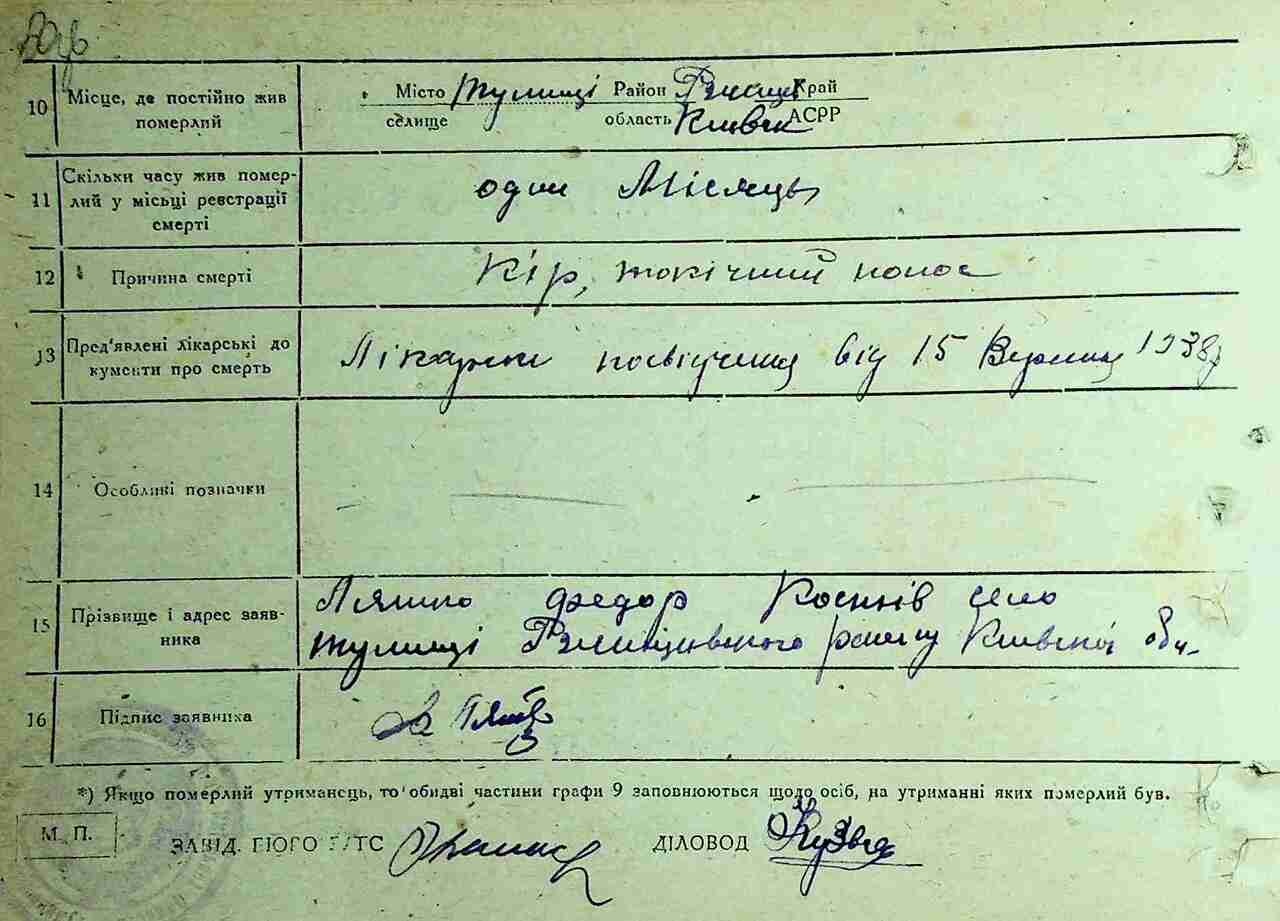 10 Місце, де постійно жив померлий
Місто Тулинці Район Ржищів Край
селище область Київськ АСРР
11 Скільки часу жив помер-
лий у місьці реєстрації
смерті
один Місяць
12 Причина смерті
Кір, токсічний понос
13 Пред'явлені лікарські до
кументи про смерть
Лікарськ посвідчення від 15 Вересня 1938р
14 Особливі позначки
15 Прізвище і адрес заяв-
ника
Ляшко Федор село
Тулинці Ржищівського району Київської обл.
16 Підпис заявника
За
*) Якщо померлий утриманець, то обидві частини графи 9 заповнюються щодо осіб, на утриманні яких померлий був.
М. П.
ЗАВІД. ДІЛОВОД